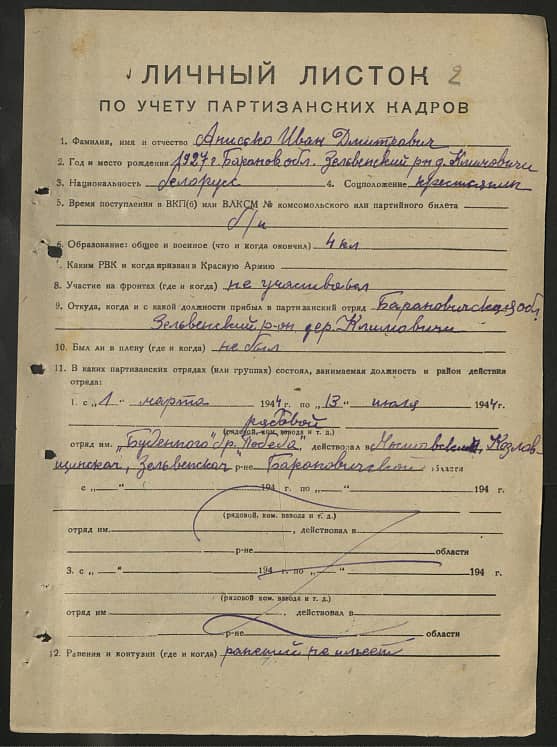 ЛИЧНЫЙ ЛИСТОК 2
ПО УЧЕТУ ПАРТИЗАНСКИХ КАДРОВ
1. Фамилия, имя и отчество Анисько Иван Дмитрович
2. Год и место рождения 1927 г. Баранов обл. Зельвенский р-н д. Климовичи
3. Национальность беларусс 4. Соцположение крестьянин
5. Время поступления в ВКП(б) или ВЛКСМ № комсомольского или партийного билета
б/п
6. Образование: общее и военное (что и когда окончил) 4 кл
7. Каким РВК и когда призван в Красную Армию
8. Участие на фронтах (где и когда) не участвовал
9. Откуда, когда и с какой должности прибыл в партизанский отряд Барановичская обл
Зельвенский р-он дер. Климовичи
10. Был ли в плену (где и когда) не был
11. В каких партизанских отрядах (или группах) состоял, занимаемая должность и район действия
отряда:
1. с „1" марта 1944 г. по „13" июля 1944 г.
рядовой
(рядовой, ком. взвода и т. д.)
отряд им. „Буденного" бр. „Победа", действовал в Мостовском, Козлов-
щинском, Зельвенском р-не Барановичской области
с „ " 194 г. по „ " 194 г.
(рядовой, ком. взвода и т. д.)
отряд им. , действовал в
р-не области
3. с „ " 194 г. по „ " 194 г.
(рядовой, ком. взвода и т. д.)
отряд им. , действовал в
р-не области
12. Ранения и контузии (где и когда) ранений не имеет